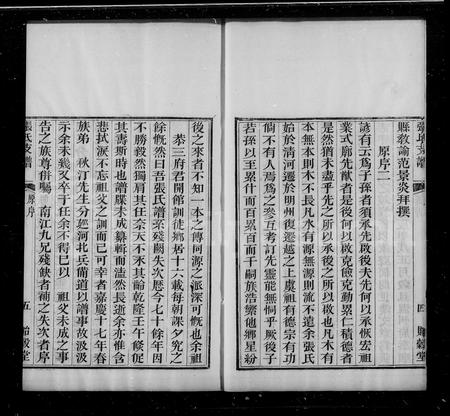 縣教諭范景炎拜撰
原序二
諺有云爲子孫者須承先啟後夫先何以承恢宏祖
業式廓先猷者是後何以啟克儉克勤累仁積德者
是然猶未盡乎先之所以承後之所以啟也凡木有
本無本則木不長凡水有源無源則流不遠余張氏
始於淸河遷於明州復遷越之上虞祖有德宗有功
倘不有人焉爲之參互考訂先靈能無恫乎厥後子
若孫以至累什而百累百而千嗣族浩繁他鄉星紛
四 貽穀堂
後之來者不知一本之傳何源之派深可慨也余祖
恭三府君開館訓徒鄉居十六載每朝課夕究之
餘慨然曰吾張氏譜系殘闕失次歷今七十餘年因
不勝毅然獨肩其任奈天不禾其齡乾隆壬午倏促
其壽斯時也譜牒未成纂輯而溘然長逝余亦惟含
悲拭淚不忘祖父之訓而已可幸者嘉慶十七年春
族弟 秋汀先生分經河北兵備道以譜事故汲汲
示余未幾又卒于任余不得已以 祖父未成之事
告之族尊併囑 南江九兄殘缺者補之失次者序
張氏支譜
原序
五 貽穀堂